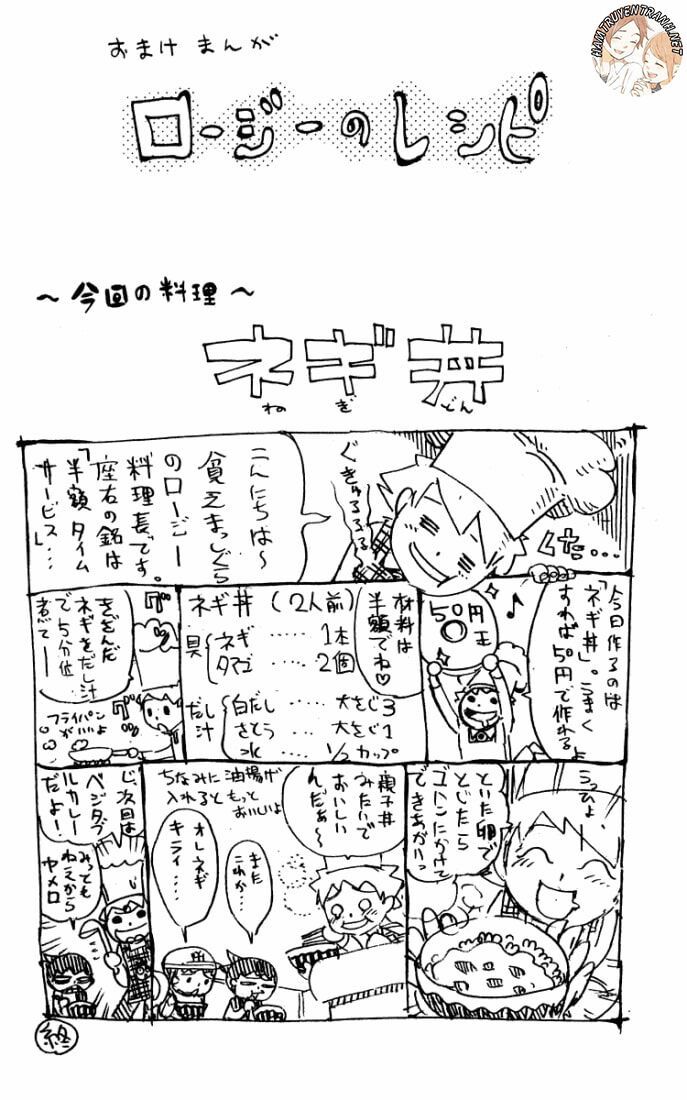 HAMTRUYENTRANH.NET
おまけまんが
ロージーのレシピ
～今回の料理～
ネギ丼
ねぎどん
ぐきゅるるるる
くた…
こんにちは～
貧乏まっしぐら
のロージー
料理長です。
座右の銘は
「半額タイム
サービス」…
今日作るのは
「ネギ丼」。うまく
すれば50円で作れるよ
うっひょ、
50円
玉
材料は
半額でね♡
ネギ丼（2人前）
具
ネギ……1本
タマゴ……2個
だし汁
白だし……大さじ3
さとう……大さじ1
水……1/2カップ
きざんだ
ネギをだし汁
で5分位
煮て―
フライパン
がいいよ
といた卵で
とじたら
ゴハンにかけて
できあがりっ
親子丼
みたいで
おいしい
んだぁ～
ちなみに油揚げ
入れるともっと
おいしいよ
また
これか…
オレネギ
キライ…
じ、次回は
ベジタブ
ルカレー
だよ！
みっとも
ねえから
ヤメロ
終